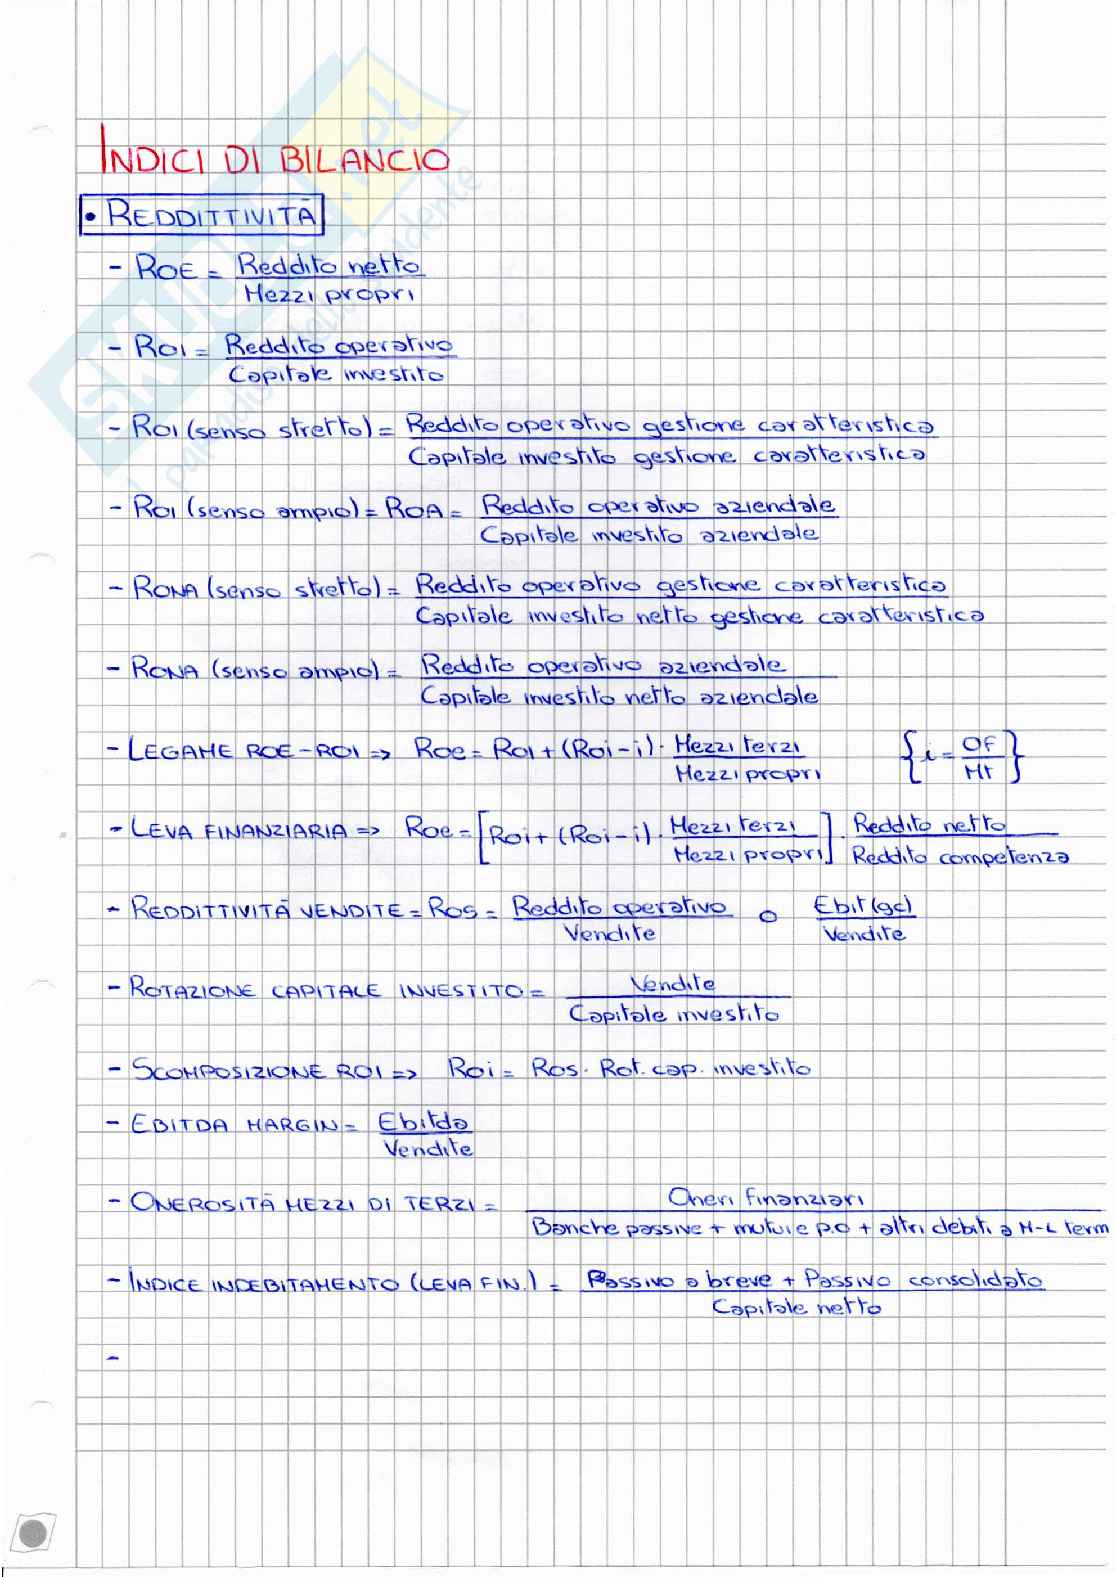 INDICI DI BILANCIO
• REDDITTIVITÀ
- ROE = Reddito netto / Mezzi propri
- ROI = Reddito operativo / Capitale investito
- ROI (senso stretto) = Reddito operativo gestione caratteristica / Capitale investito gestione caratteristica
- ROI (senso ampio) = ROA = Reddito operativo aziendale / Capitale investito aziendale
- RONA (senso stretto) = Reddito operativo gestione caratteristica / Capitale investito netto gestione caratteristica
- RONA (senso ampio) = Reddito operativo aziendale / Capitale investito netto aziendale
- LEGAME ROE-ROI => Roe = Roi + (Roi - i) · Mezzi terzi / Mezzi propri { i = OF / Mt }
- LEVA FINANZIARIA => Roe = [Roi + (Roi - i) · Mezzi terzi / Mezzi propri] · Reddito netto / Reddito competenza
- REDDITTIVITÀ VENDITE = ROS = Reddito operativo / Vendite o Ebit (gc) / Vendite
- ROTAZIONE CAPITALE INVESTITO = Vendite / Capitale investito
- SCOMPOSIZIONE ROI => Roi = Ros · Rot. cap. investito
- EBITDA MARGIN = Ebitda / Vendite
- ONEROSITÀ MEZZI DI TERZI = Oneri finanziari / Banche passive + mutui e p.o + altri debiti a M-L term
- INDICE INDEBITAMENTO (LEVA FIN.) = Passivo a breve + Passivo consolidato / Capitale netto
-